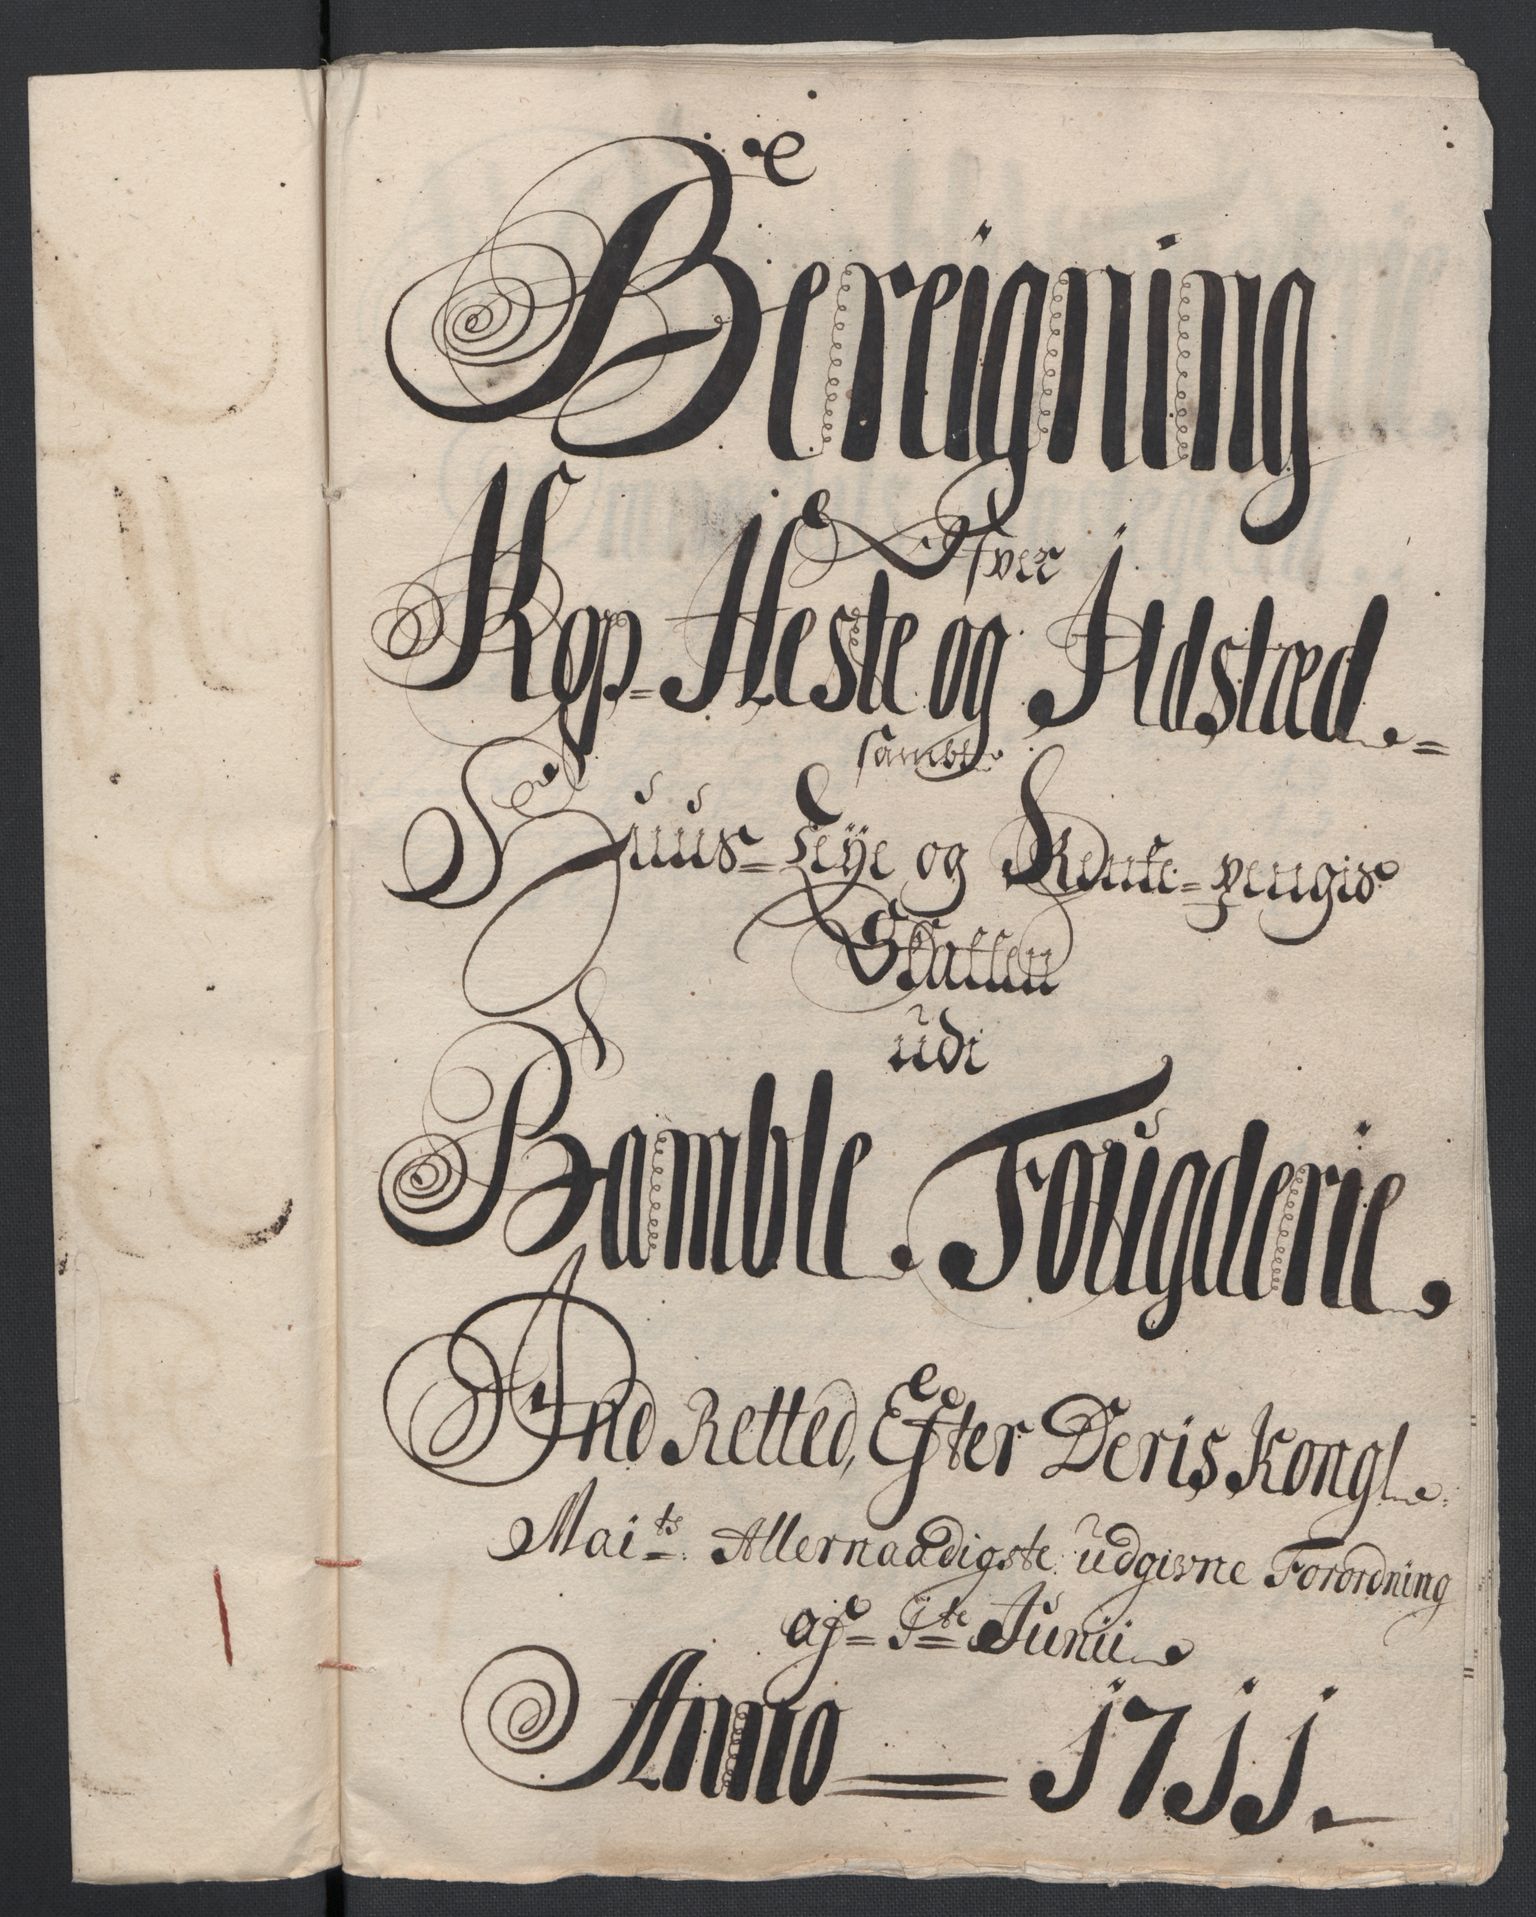 Bereigning
Ofver
Kop-Heste og Ildstæd=
sambt
Huus-Leÿe og Rente-pengis
Skatten
udi
Bamble Fougderie
Ind Retted, Efter Deris Kongl.
Maits. Allernaadigste udgivne Forordning
af 1te Junii
Anno = 1711.